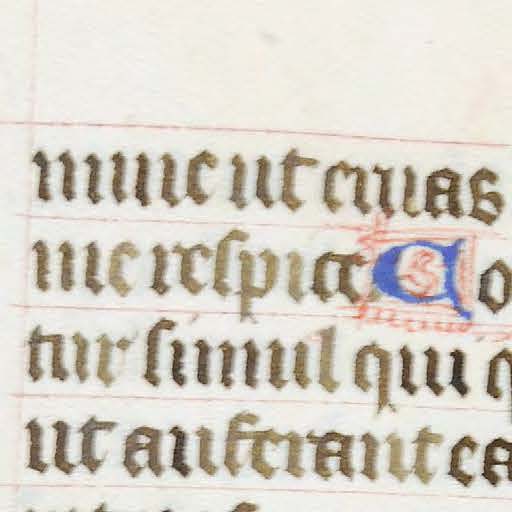 mine ut eruas
me respice Co
tur simul qui q
ut auferant ea